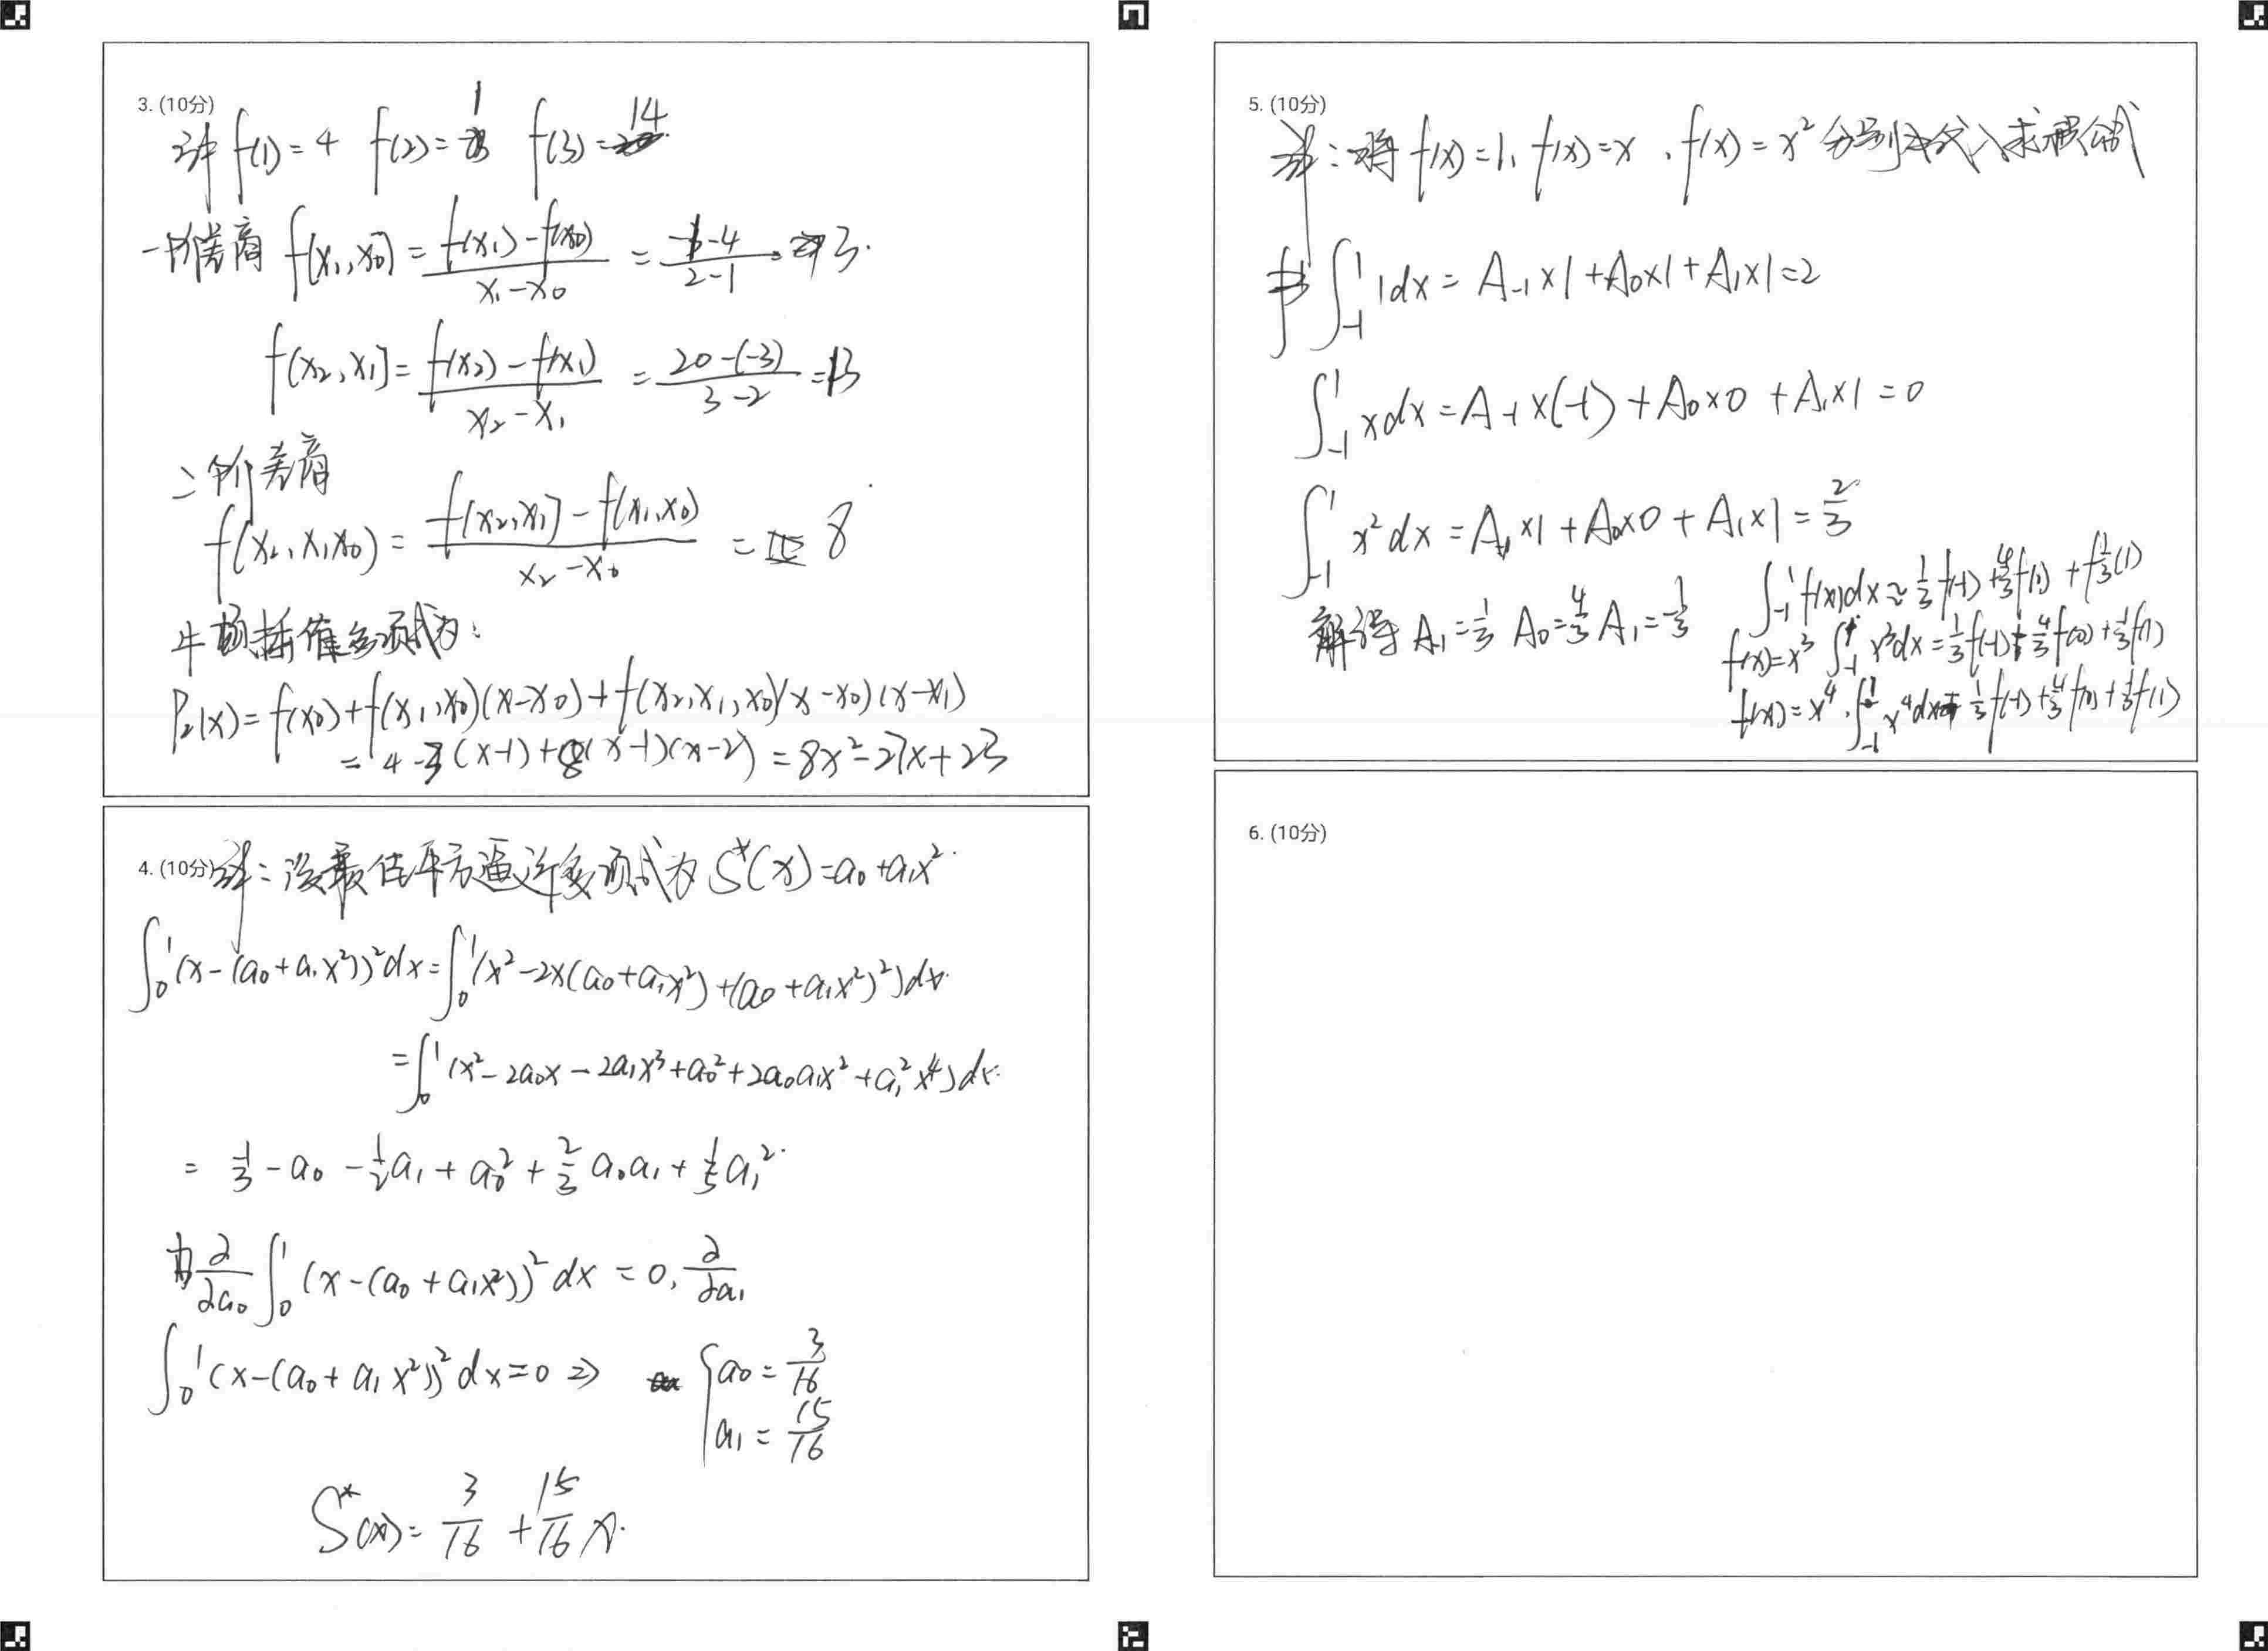 3. (10分)
解 f(1)=4 f(2)=1 f(3)=14
一阶差商 f(x₁,x₀]=(f(x₁)-f(x₀))/(x₁-x₀)=(1-4)/(2-1)=-3.
f(x₂,x₁]=(f(x₂)-f(x₁))/(x₂-x₁)=(20-(-3))/(3-2)=13
二阶差商
f(x₂,x₁x₀)=(f(x₂,x₁]-f(x₁,x₀))/(x₂-x₀)=8
牛顿插值多项式为:
P₂(x)=f(x₀)+f(x₁,x₀)(x-x₀)+f(x₂,x₁,x₀)(x-x₀)(x-x₁)
=4-3(x-1)+8(x-1)(x-2)=8x²-27x+23
4. (10分) 解:设最佳平方逼近多项式为 S*(x)=a₀+a₁x²
∫₀¹(x-(a₀+a₁x²))²dx=∫₀¹(x²-2x(a₀+a₁x²)+(a₀+a₁x²)²)dx
=∫₀¹(x²-2a₀x-2a₁x³+a₀²+2a₀a₁x²+a₁²x⁴)dx
=1/3-a₀-1/2a₁+a₀²+2/3a₀a₁+1/5a₁²
由∂/∂a₀∫₀¹(x-(a₀+a₁x²))²dx=0,∂/∂a₁
∫₀¹(x-(a₀+a₁x²))²dx=0⇒ {a₀=3/16
a₁=15/16
S*(x)=3/16+15/16x
5. (10分)
解:将f(x)=1,f(x)=x,f(x)=x²分别代入求积公式
∫₋₁¹1dx=A₋₁×1+A₀×1+A₁×1=2
∫₋₁¹xdx=A₋₁×(-1)+A₀×0+A₁×1=0
∫₋₁¹x²dx=A₋₁×1+A₀×0+A₁×1=2/3
解得A₋₁=1/3 A₀=4/3 A₁=1/3
∫₋₁¹f(x)dx≈1/3f(-1)+4/3f()+f1/3(1)
f(x)=x³ ∫₋₁¹x³dx=1/3f(-1)+4/3f(0)+1/3f(1)
f(x)=x⁴,∫₋₁¹x⁴dx≠1/3f(-1)+4/3f(0)+1/3f(1)
6. (10分)